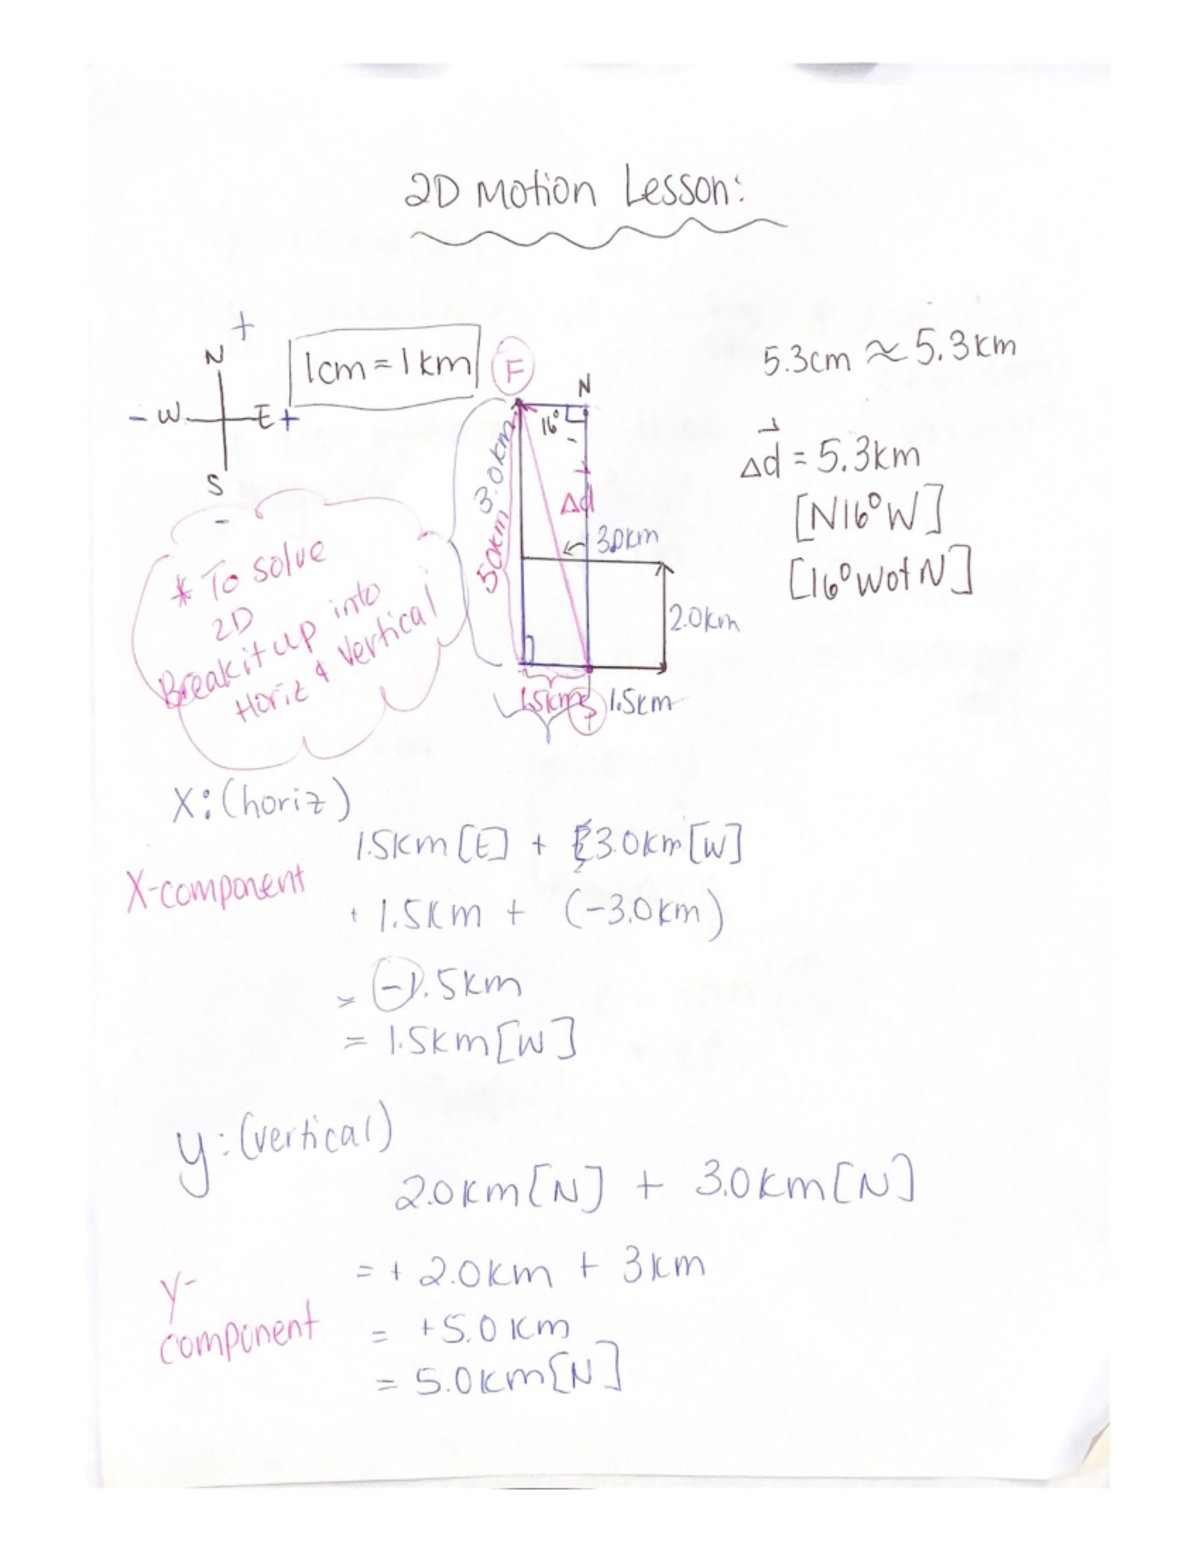 2D Motion Lesson:
+
N
- W E +
S
-
1cm = 1km
F
N
16°
3.0km
5.0km
Δd
3.0km
2.0km
1.5km
1.5km
5.3cm ≈ 5.3km
Δd = 5.3km
[N16°W]
[16°WofN]
* To solve
2D
Break it up into
Horiz & Vertical
x: (horiz)
1.5km [E] + 3.0km [W]
X-component
+ 1.5km + (-3.0km)
= -1.5km
= 1.5km [W]
y: (vertical)
2.0km [N] + 3.0km [N]
= + 2.0km + 3km
Y-
component
= +5.0km
= 5.0km [N]